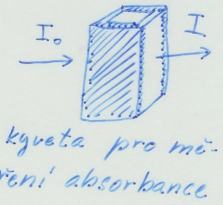 I₀ I
kyveta pro mě-
ření absorbance